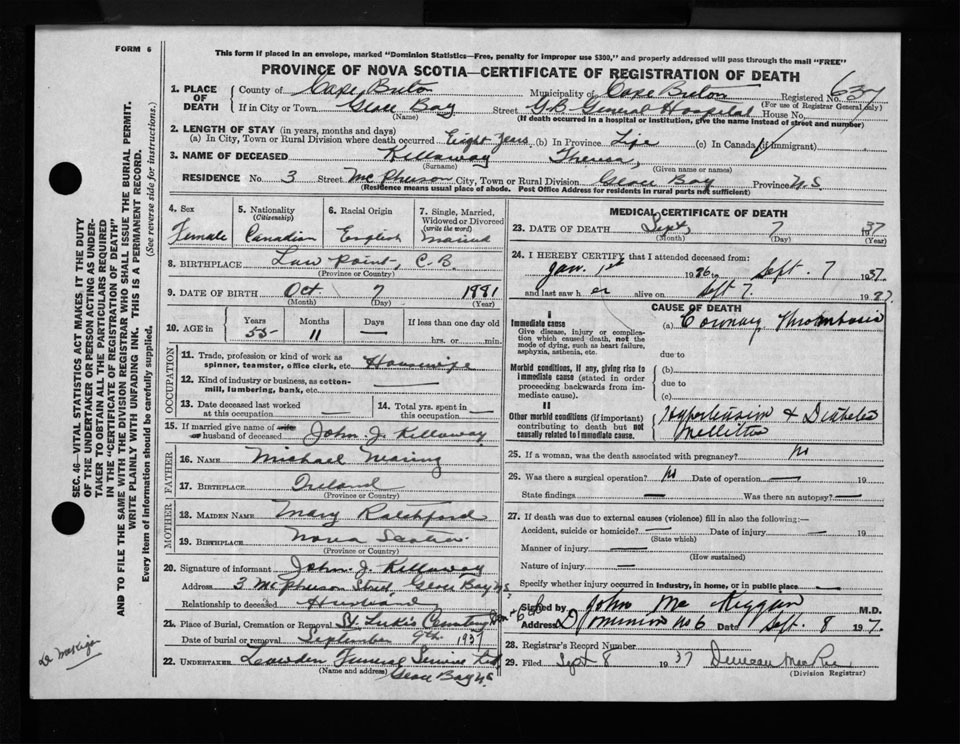 FORM 6
This form if placed in an envelope, marked "Dominion Statistics—Free, penalty for improper use $300," and properly addressed will pass through the mail "FREE"
PROVINCE OF NOVA SCOTIA—CERTIFICATE OF REGISTRATION OF DEATH
1. PLACE OF DEATH County of Cape Breton Municipality of Cape Breton Registered No. 637
(For use of Registrar General only)
If in City or Town Glace Bay Street G.B. General Hospital House No.
(Name) (If death occurred in a hospital or institution, give the name instead of street and number)
2. LENGTH OF STAY (in years, months and days)
(a) In City, Town or Rural Division where death occurred Eight Years (b) In Province Life (c) In Canada (if immigrant)
3. NAME OF DECEASED Kellaway Theresa,
(Surname) (Given name or names)
RESIDENCE No. 3 Street McPherson City, Town or Rural Division Glace Bay Province N.S
(Residence means usual place of abode. Post Office Address for residents in rural parts not sufficient)
4. Sex 5. Nationality (Citizenship) 6. Racial Origin 7. Single, Married, Widowed or Divorced (write the word)
Female Canadian English Married
8. BIRTHPLACE Low Point, C.B.
(Province or Country)
9. DATE OF BIRTH Oct 7 1881
(Month) (Day) (Year)
10. AGE in Years Months Days If less than one day old
55 11 — hrs. or min.
OCCUPATION
11. Trade, profession or kind of work as spinner, teamster, office clerk, etc. Housewife
12. Kind of industry or business, as cotton-mill, lumbering, bank, etc. —
13. Date deceased last worked at this occupation — 14. Total yrs. spent in this occupation —
15. If married give name of wife or husband of deceased John J. Kellaway
FATHER
16. NAME Michael Nearing
17. BIRTHPLACE Ireland
(Province or Country)
MOTHER
18. MAIDEN NAME Mary Ratchford
19. BIRTHPLACE Nova Scotia
(Province or Country)
20. Signature of informant John J. Kellaway
Address 3 McPherson Street, Glace Bay N.S.
Relationship to deceased Husband
21. Place of Burial, Cremation or Removal St. Luke's Cemetery
Date of burial or removal September 9th. 1937
22. UNDERTAKER Lowden Funeral Service Ltd.
(Name and address) Glace Bay N.S
MEDICAL CERTIFICATE OF DEATH
23. DATE OF DEATH Sept, 7 37
(Month) (Day) (Year)
24. I HEREBY CERTIFY that I attended deceased from:
Jan. 1st 1926, Sept. 7 1937.
and last saw h er alive on Sept 7. 1937.
CAUSE OF DEATH
I
Immediate cause (a) Coronary Thrombosis
Give disease, injury or complication which caused death, not the mode of dying, such as heart failure, asphyxia, asthenia, etc.
due to
Morbid conditions, if any, giving rise to immediate cause (stated in order proceeding backwards from immediate cause).
(b)
due to
(c)
II
Other morbid conditions (if important) contributing to death but not causally related to immediate cause.
Hypertension & Diabetes Mellitus
25. If a woman, was the death associated with pregnancy? No
26. Was there a surgical operation? No Date of operation — 19
State findings — Was there an autopsy? —
27. If death was due to external causes (violence) fill in also the following:—
Accident, suicide or homicide? — Date of injury — 19
(State which)
Manner of injury —
(How sustained)
Nature of injury —
Specify whether injury occurred in industry, in home, or in public place —
Signed by John Mc Kiggan M.D.
Address Dominion No 6 Date Sept. 8 1937.
28. Registrar's Record Number
29. Filed Sept 8 1937 Duncan MacRae
(Division Registrar)
SEC. 46—VITAL STATISTICS ACT MAKES IT THE DUTY
OF THE UNDERTAKER OR PERSON ACTING AS UNDER-
TAKER TO OBTAIN ALL THE PARTICULARS REQUIRED
IN THE "CERTIFICATE OF REGISTRATION OF DEATH"
AND TO FILE THE SAME WITH THE DIVISION REGISTRAR WHO SHALL ISSUE THE BURIAL PERMIT.
WRITE PLAINLY WITH UNFADING INK. THIS IS A PERMANENT RECORD.
Every item of information should be carefully supplied. (See reverse side for instructions.)